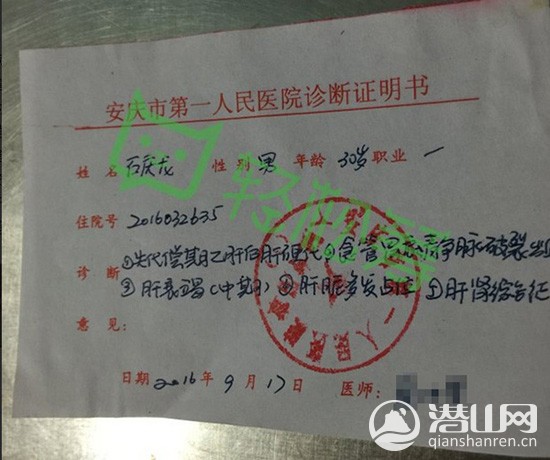 安庆市第一人民医院诊断证明书
姓名 石庆龙 性别 男 年龄 30岁 职业 一
住院号 2016032635
诊断 ①失代偿期乙肝后肝硬化 ②食管胃底静脉破裂出血
③肝衰竭(中期) ④肝脏多发占位 ⑤肝肾综合征
意见:
日期 2016年9月17日 医师:
轻松筹
潜山网
qianshanren.cn